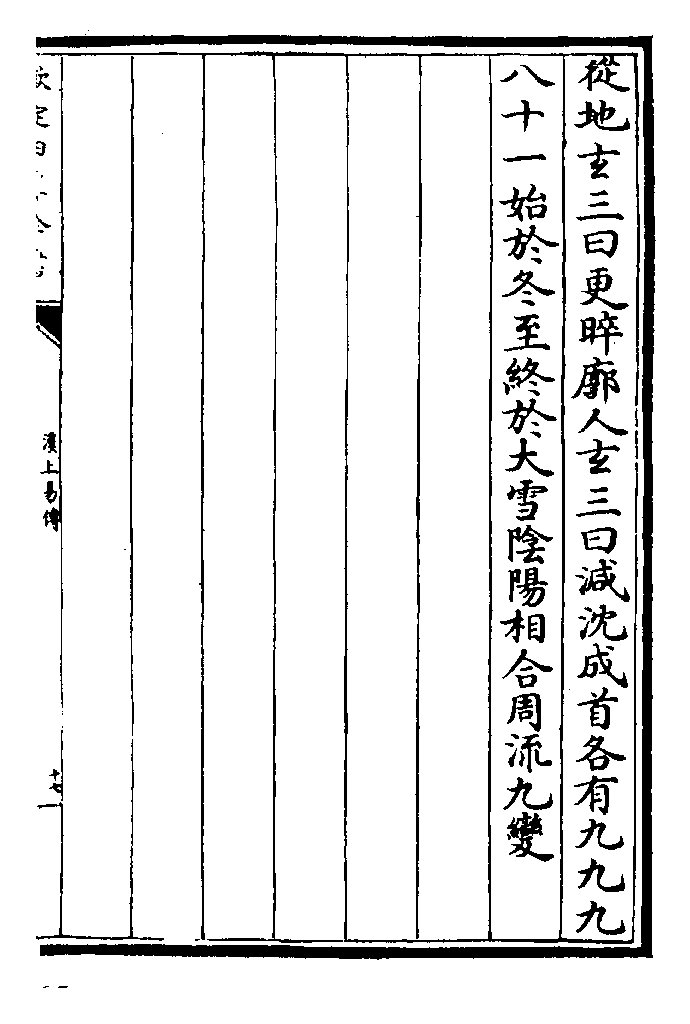 從地𤣥三曰更睟廓人𤣥三曰減沈成首各有九九九
八十一始於冬至終於大雪陰陽相合周流九變
漢上易傳
十七